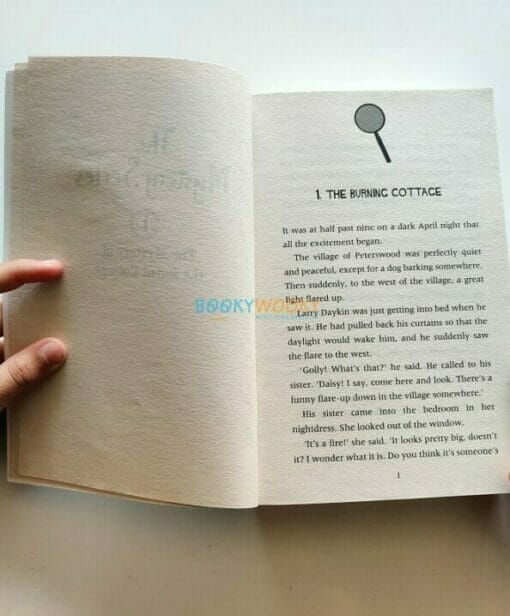 BOOKYWOOKY
1. THE BURNING COTTAGE
It was at half past nine on a dark April night that
all the excitement began.
The village of Peterswood was perfectly quiet
and peaceful, except for a dog barking somewhere.
Then suddenly, to the west of the village, a great
light flared up.
Larry Daykin was just getting into bed when he
saw it. He had pulled back his curtains so that the
daylight would wake him, and he suddenly saw
the flare to the west.
'Golly! What's that?' he said. He called to his
sister. 'Daisy! I say, come here and look. There's a
funny flare-up down in the village somewhere.'
His sister came into the bedroom in her
nightdress. She looked out of the window.
'It's a fire!' she said. 'It looks pretty big, doesn't
it? I wonder what it is. Do you think it's someone's
1